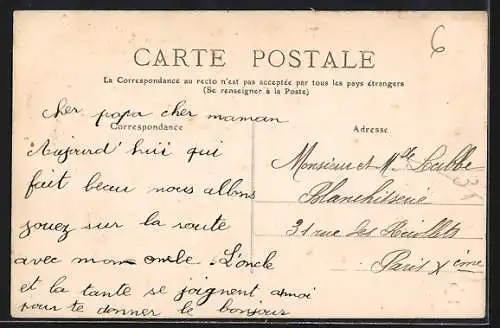 6
CARTE POSTALE
La Correspondance au recto n'est pas acceptée par tous les pays étrangers
(Se renseigner à la Poste)
cher papa cher maman
Correspondance
Aujourd'huii qui
fait beau nous allons
jouez sur la route
avec mon oncle L'oncle
et la tante se joignent a moi
pour te donner le bonjour
Adresse
Monsieur et Mme Labbé
Blanchisserie
31 rue des
Paris Xème